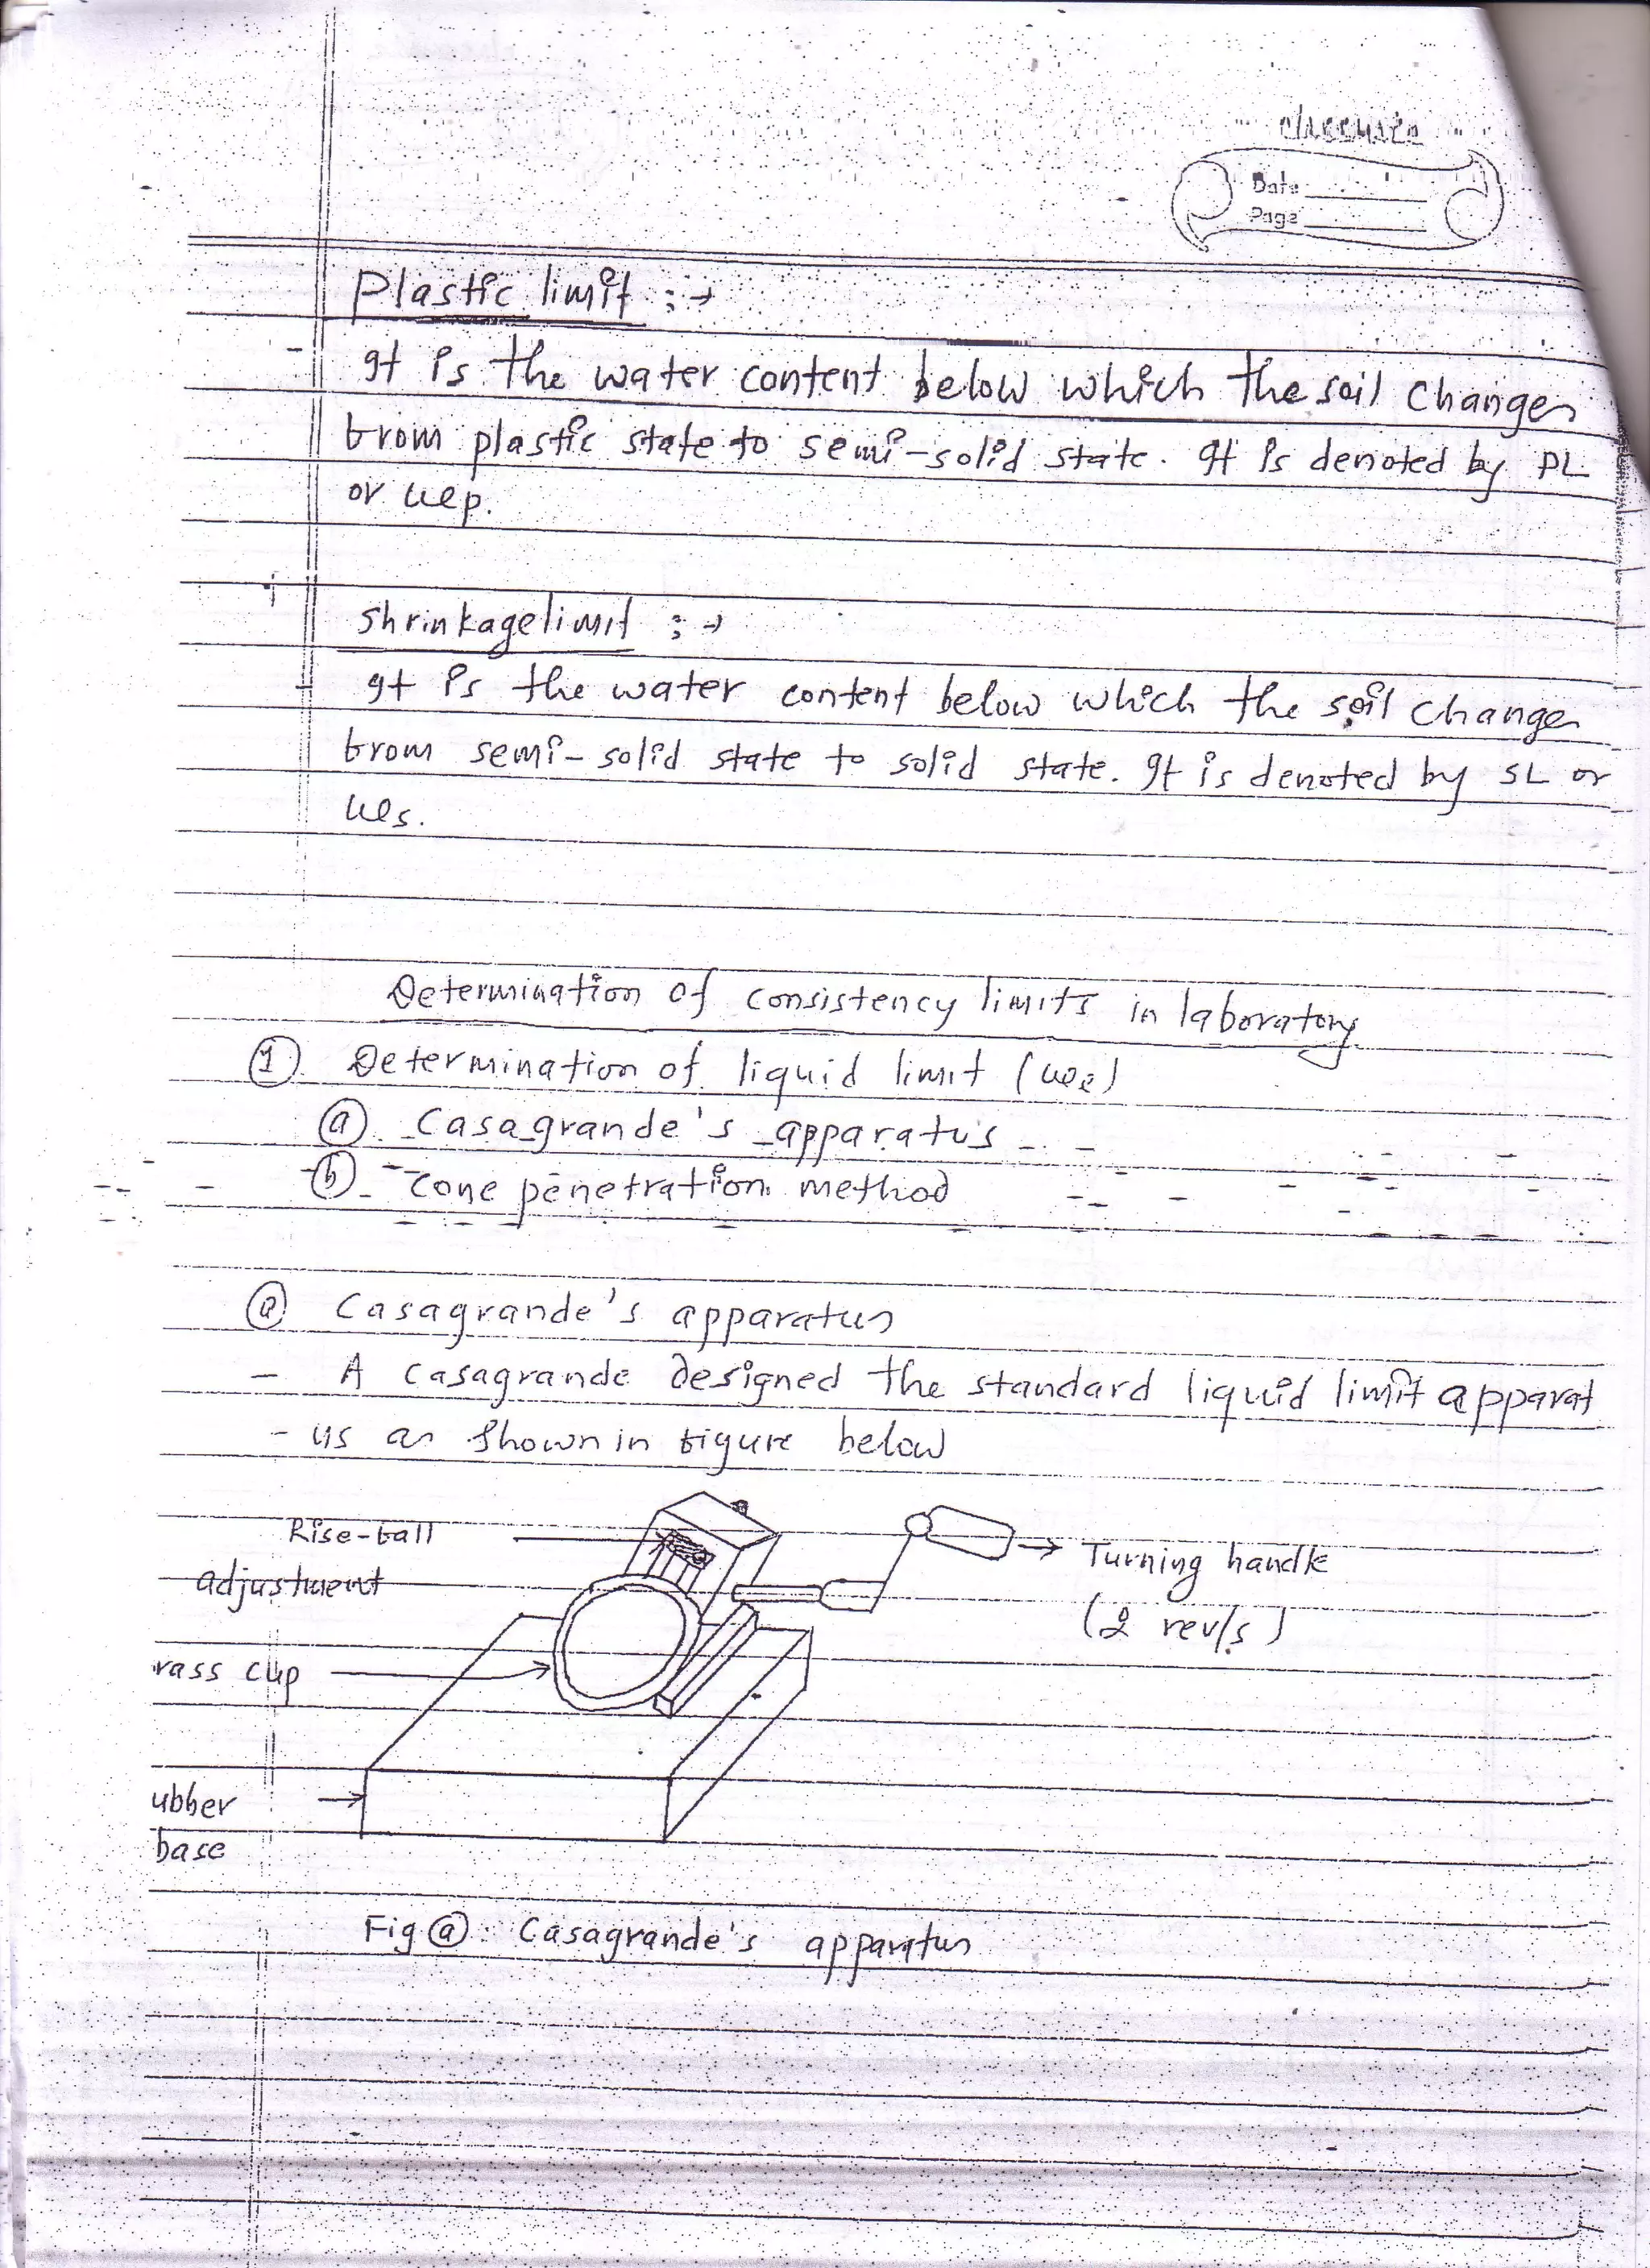 classmate
Date
Page
Plastic limit :→
- It is the water content below which the soil changes
from plastic state to semi-solid state. It is denoted by PL
or wp.
Shrinkage limit :→
- It is the water content below which the soil changes
from semi-solid state to solid state. It is denoted by SL or
ws.
Determination of consistency limits in laboratory
① Determination of liquid limit (wl)
ⓐ Casagrande's apparatus
ⓑ Cone penetration method
ⓐ Casagrande's apparatus
- A Casagrande designed the standard liquid limit apparat
- us as shown in figure below
Rise-fall
adjustment
→ Turning handle
(2 rev/s)
rass cup
ubber
base
Fig ⓐ: Casagrande's apparatus